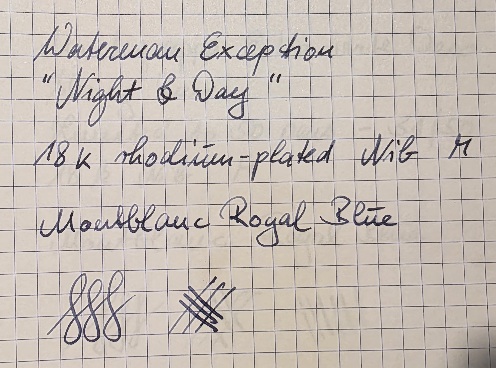 Waterman Exception
"Night & Day"
18k rhodium-plated Nib M
Montblanc Royal Blue